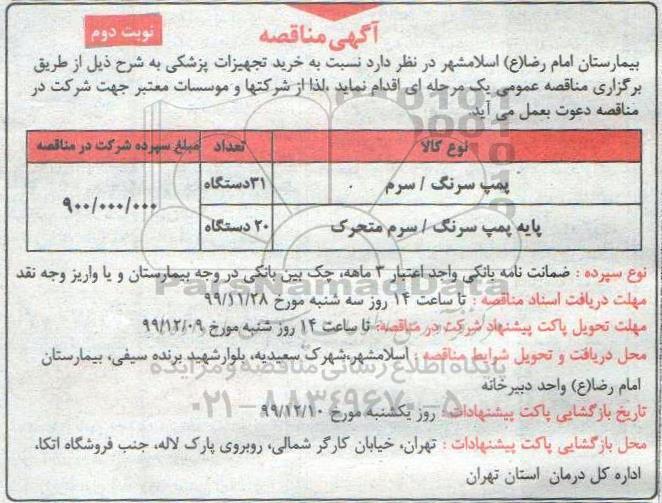 آگهی مناقصه
نوبت دوم
بیمارستان امام رضا(ع) اسلامشهر در نظر دارد نسبت به خرید تجهیزات پزشکی به شرح ذیل از طریق
برگزاری مناقصه عمومی یک مرحله ای اقدام نماید ،لذا از شرکتها و موسسات معتبر جهت شرکت در
مناقصه دعوت بعمل می آید.
نوع کالا تعداد مبلغ سپرده شرکت در مناقصه
پمپ سرنگ / سرم ۳۱دستگاه
۹۰۰/۰۰۰/۰۰۰
پایه پمپ سرنگ / سرم متحرک ۲۰ دستگاه
نوع سپرده : ضمانت نامه بانکی واجد اعتبار ۳ ماهه، چک بین بانکی در وجه بیمارستان و یا واریز وجه نقد
ParsNamadData
مهلت دریافت اسناد مناقصه : تا ساعت ۱۴ روز سه شنبه مورخ ۹۹/۱۱/۲۸
مهلت تحویل پاکت پیشنهاد شرکت در مناقصه: تا ساعت ۱۴ روز شنبه مورخ ۹۹/۱۲/۰۹
محل دریافت و تحویل شرایط مناقصه : اسلامشهر،شهرک سعیدیه، بلوارشهید برنده سیفی، بیمارستان
پایگاه اطلاع رسانی مناقصه و مزایده
امام رضا(ع) واحد دبیرخانه
۰۲۱-۸۸۳۴۹۶۷۰-۵
تاریخ بازگشایی پاکت پیشنهادات: روز یکشنبه مورخ ۹۹/۱۲/۱۰
محل بازگشایی پاکت پیشنهادات : تهران، خیابان کارگر شمالی، روبروی پارک لاله، جنب فروشگاه اتکا،
اداره کل درمان استان تهران